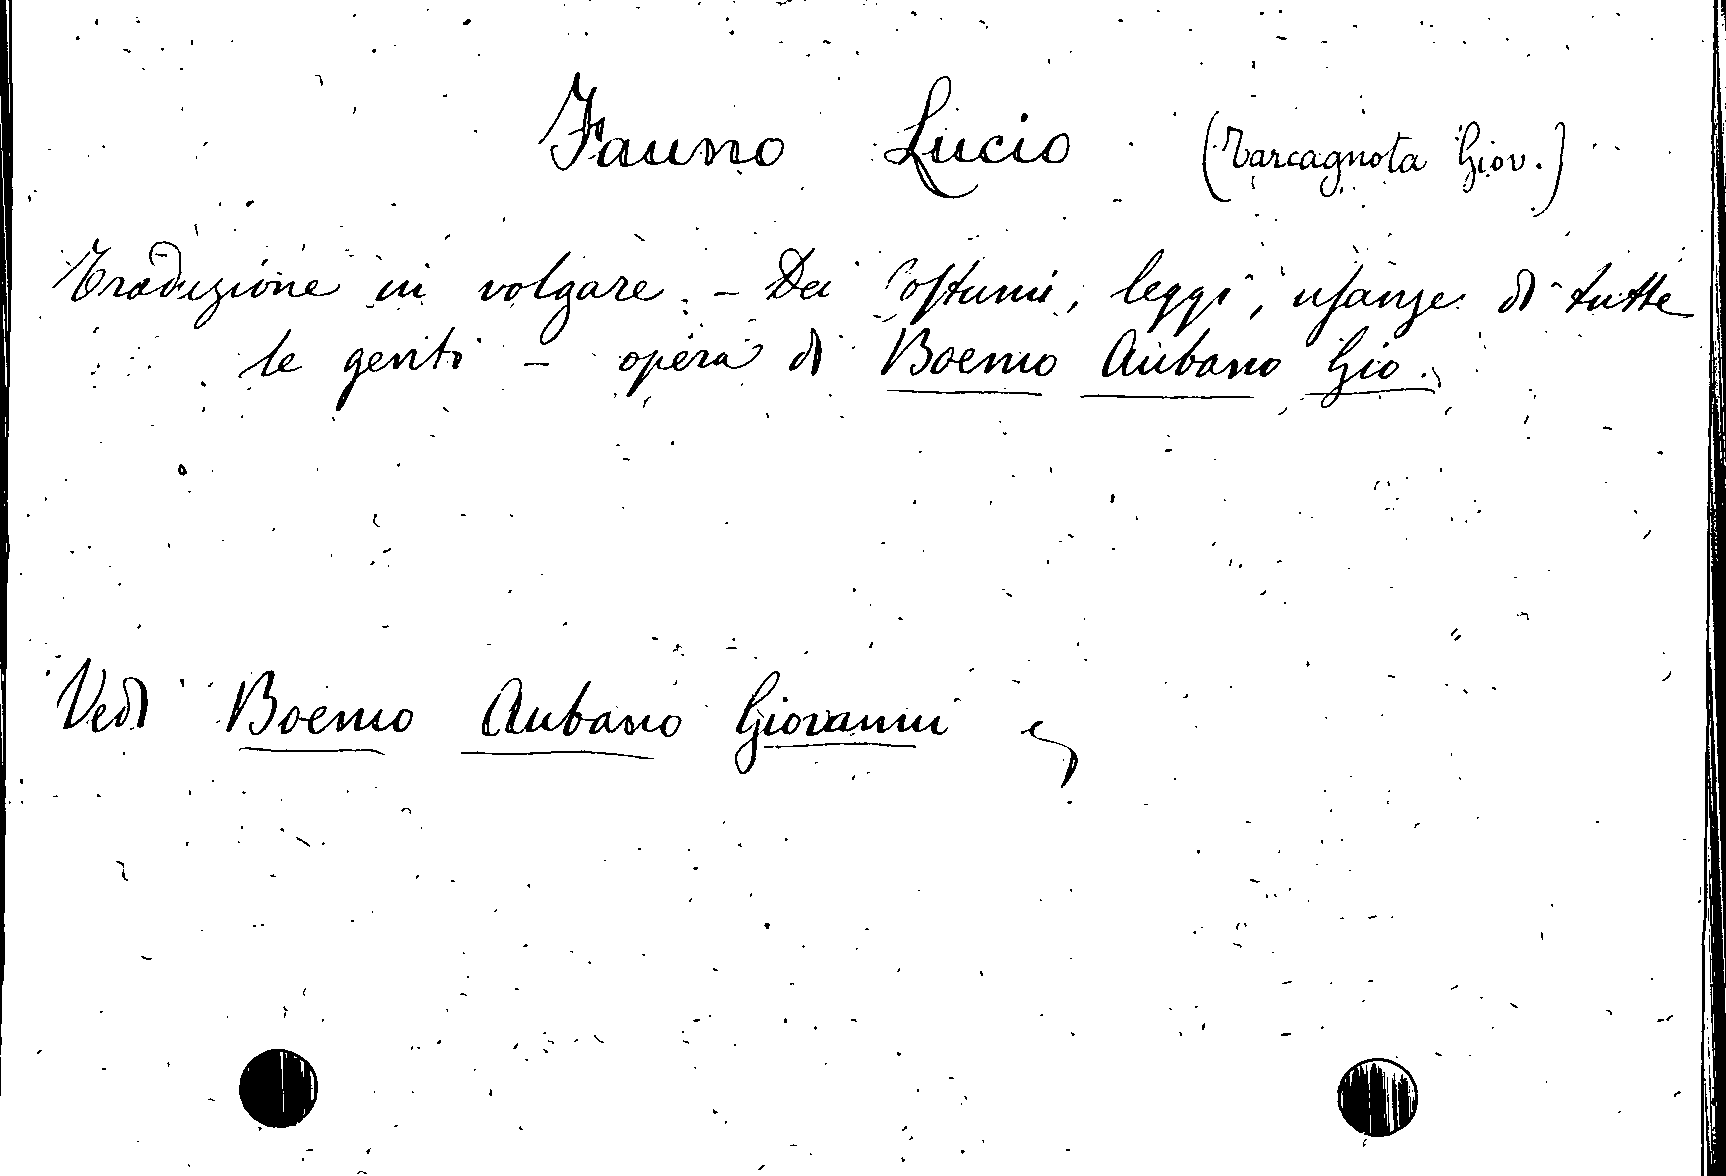 Fauno Lucio (Tarcagnota Giov.)
Traduzione in volgare. - Dei Costumi, leggi, usanze di tutte
le genti - opera di Boemo Aubano Gio.
Vedi Boemo Aubano Giovanni